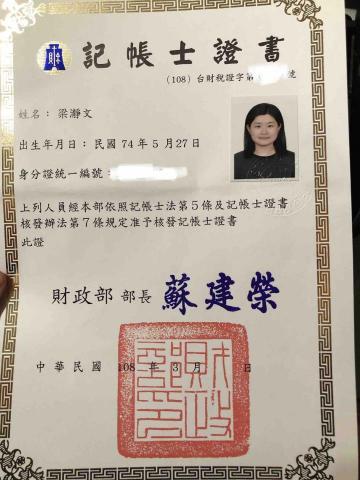 記帳士證書
(108)台財稅證字第 號
姓名：梁瀞文
出生年月日：民國74年5月27日
身分證統一編號：
上列人員經本部依照記帳士法第5條及記帳士證書
核發辦法第7條規定准予核發記帳士證書
此證
財政部 部長 蘇建榮
中華民國 108 年 3 月 日
財政部印